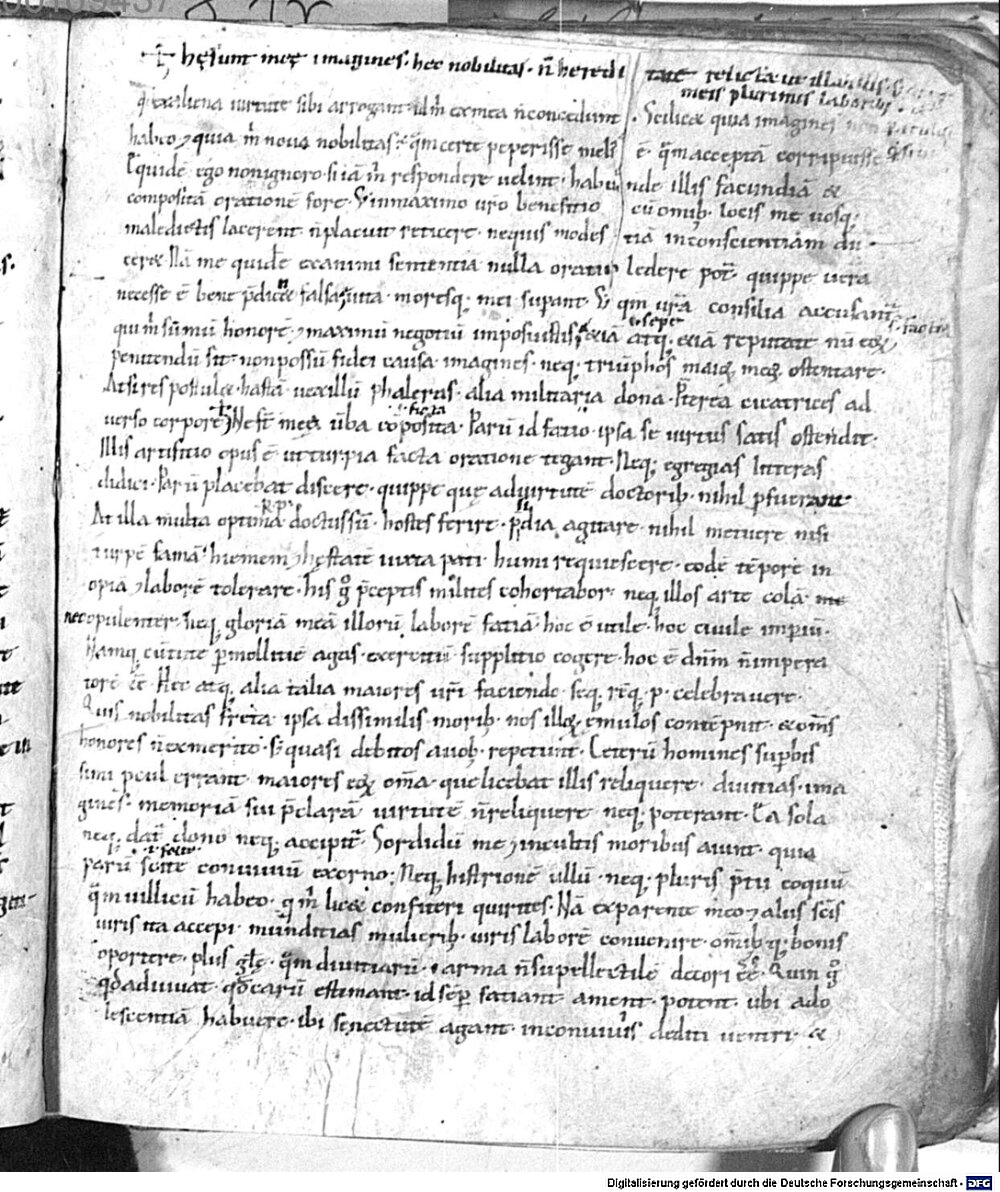 hęsunt meę imagines. hec nobilitas. n̄ heredi tate relicta ut illa illis.
meis plurimis laboribus
q̇ exaliena uirtute sibi arrogant idm̄ exmea n̄concedunt. Scilicet quia imagines non
habeo ⁊quia m̄ noua nobilitas. q̄m certe peperisse meli᷒ ē q̄m acceptā corripuisse
Equidē ego nonignoro. si iā m̄ respondere uelint. habunde illis facundiā &
compositā orationē fore. S; inmaximo ur̄o benefitio cū omib; locis me uosq;
maledictis lacerent n̄placuit reticere. nequis modestiā inconscientiam du
ceret. Nā me quidē exanimi sententiā nulla oratio ledere pot̄. quippe uera
necesse ē bene p̄dicet falsa uita moresq; mei supant. S; qm̄ ur̄a consilia accusant᷑
qui m̄ sūmū honorē ⁊maximū negotiū imposuistis. etiā atq; etiā reputate nū eoꝝ
penitendū sit. nonpossū fidei causa imagines. neq; triūphos maioꝝ meoꝝ ostentare.
At si res postulet. hastā. uexillū phaleras. alia militaria dona. P̄terea cicatrices ad
uerso corpore. N̄ sr̄ mea ūba cōposita. Parū id fatio. ipsa se uirtus satis ostendit.
Illis artifitio opus ē ut turpia facta oratione tegant. Neq; egregias litteras
didici. Parū placebat discere. quippe quę aduirtutē doctorib; nihil pfuerant
At illa multa optima R.P. doctussū. hostes ferire. p̄sidia agitare. nihil metuere nisi
turpē famā. hiemem ⁊hęstatē iuxta pati. humi requiescere. eodē tēpore in
opiā ⁊laborē tolerare. his g̊ p̄ceptis milites cohortabor. neq; illos arte colā me
nec opulenter. neq; gloriā meā illorū laborē fatiā. hoc ē utile. hoc ciuile imp̄iū.
Namq; cū tute p̄mollitiē agas. exercitū supplitio cogere. hoc ē dn̄m n̄impera
torē eē. Hec atq; alia talia maiores ur̄i faciendo. seq; rēq; .p. celebrauere.
Quis nobilitas freta ipsa dissimilis morib; nos illoꝝ emulos contēpnit. & om̄s
honores n̄exmerito. s; quasi debitos auob; repetunt. Ceterū homines sup̄bis
simi pcul errant. maiores eoꝝ om̄a que licebat illis reliquere. diuitias. ima
gines. memoriā sui p̄clarā. uirtutē n̄reliquere neq; poterant. Ea sola
neq; dat᷑ dono neq; accipit᷑. Sordidū me ⁊incultis moribus aiunt. quia
parū scite conuiuiū exorno. Neq; histrionē ullū. neq; pluris p̄tii coquū
q̄m uillicū habeo. q̄ m̄ licet confiteri quirites. Nā exparente meo ⁊aliis sc̄is
uiris ita accepi. munditias mulierib;. uiris laborē conuenire. om̄ib; q; bonis
oportere. plus gl̄ę. q̄m diuitiarū. arma n̄supellectilē decori eē. Quin g̊
qd̄adiuuat qd̄carū estimant. id sēp satiant. ament. potent. ubi ado
lescentiā habuere. ibi senectutē agant. inconuiuiis dediti uentri. &
Digitalisierung gefördert durch die Deutsche Forschungsgemeinschaft - DFG